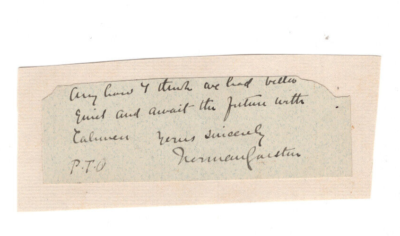 Any how I think we had better
Quiet and await the future with
Calmness Yours sincerely
P.T.O Norman Garstin